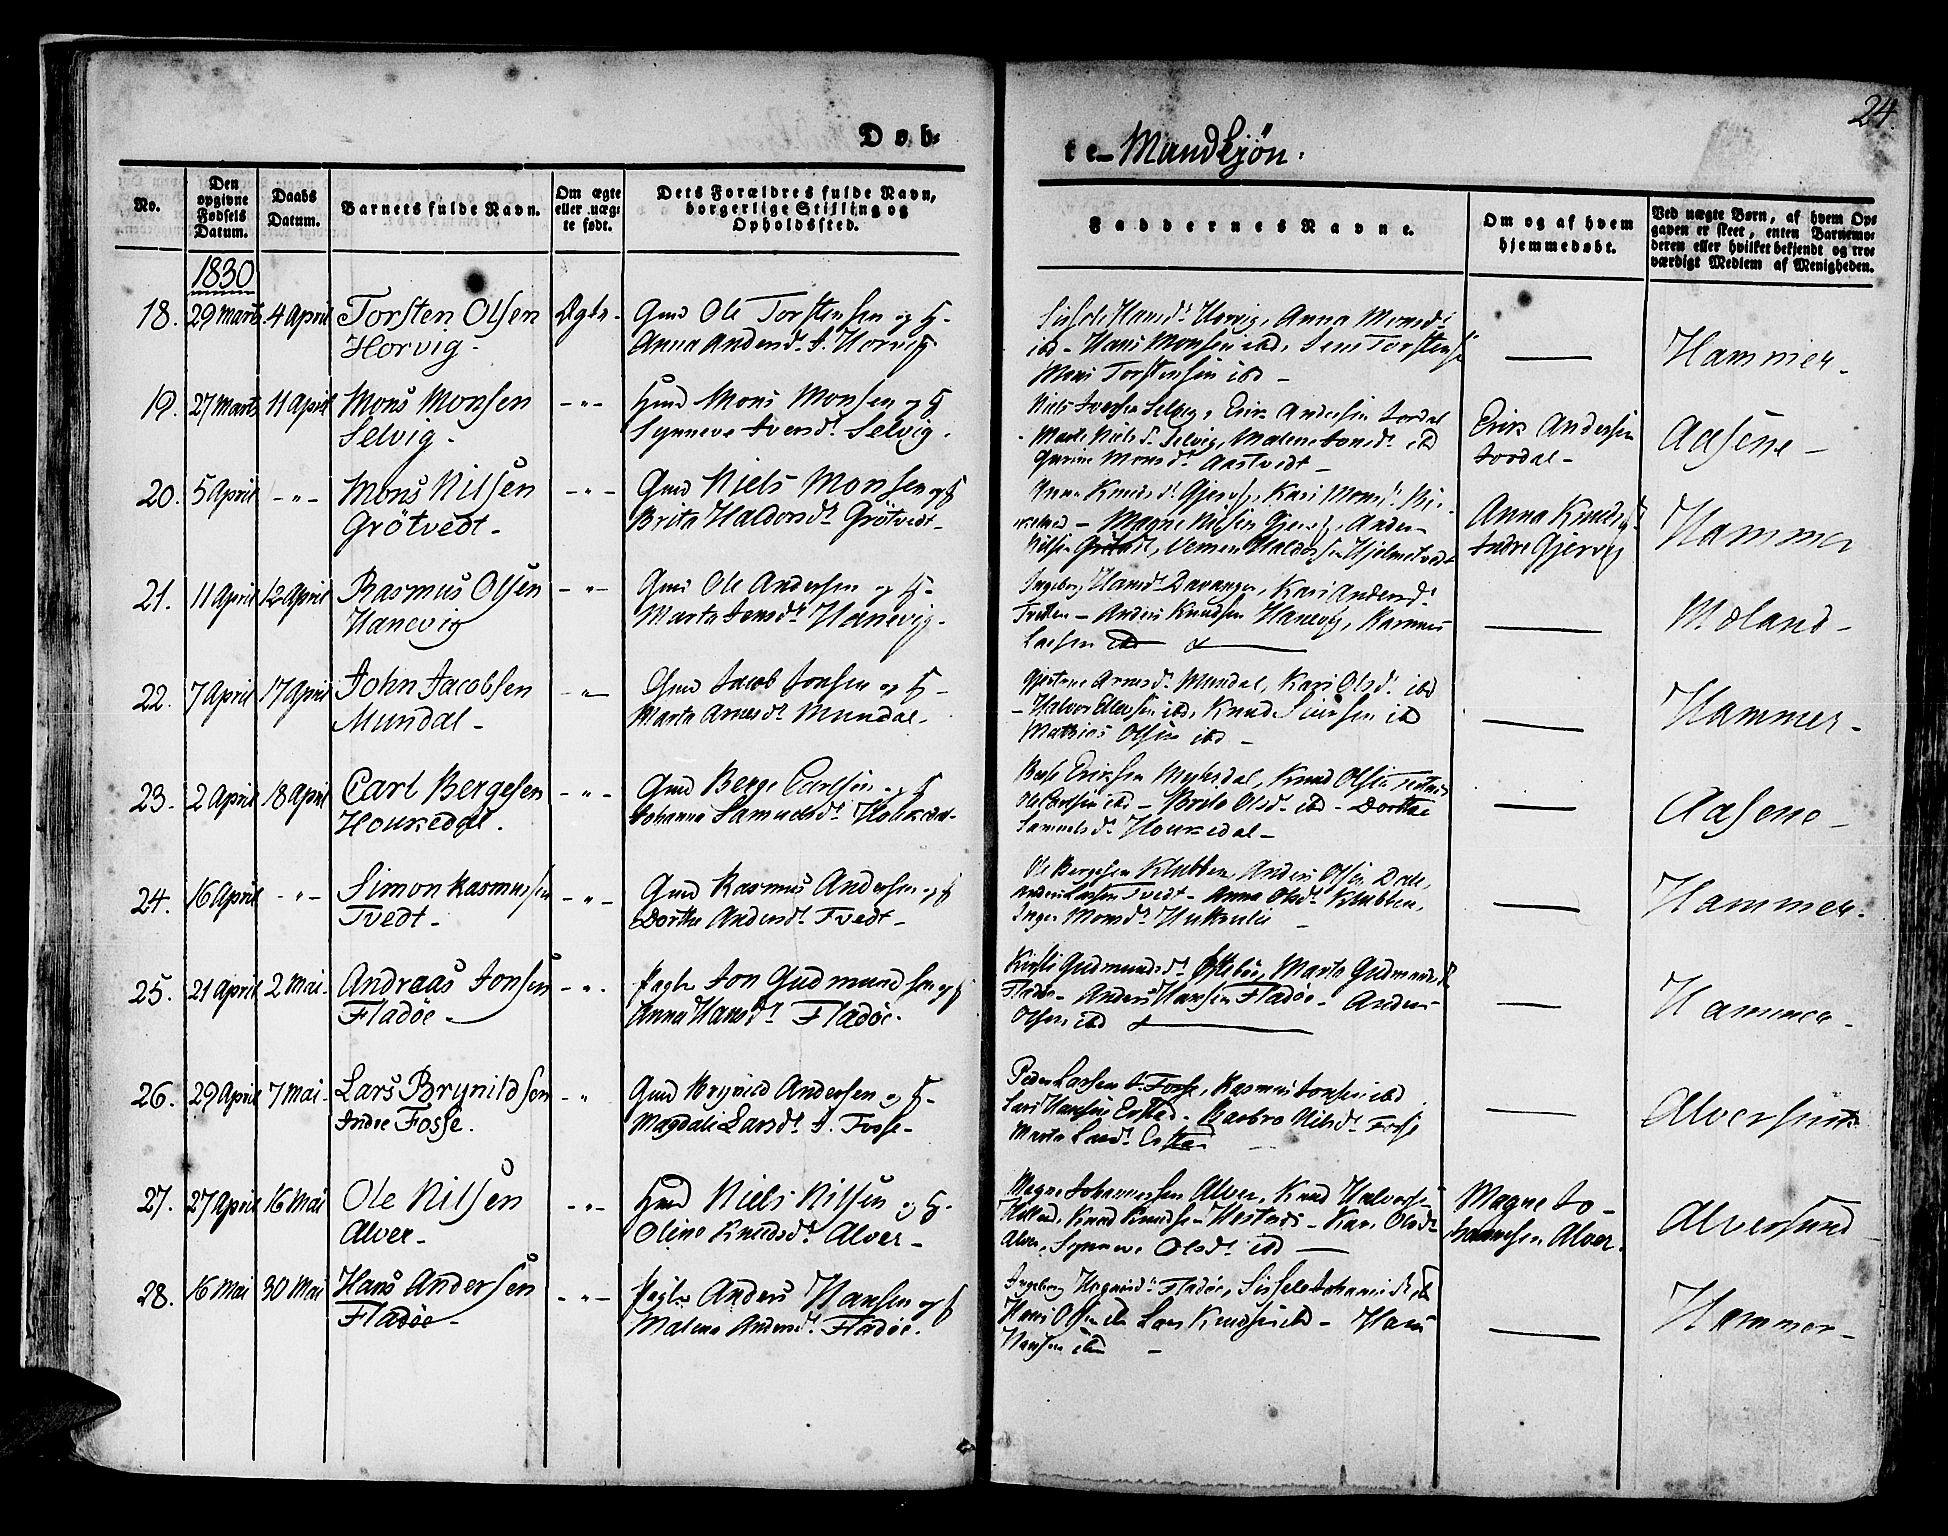 24.
Døb-
te - Mandkjøn.
No.
Den opgivne Fødsels Datum.
Daabs Datum.
Barnets fulde Navn.
Om ægte eller uægte født.
Dets Forældres fulde Navn, borgerlige Stilling og Opholdssted.
Faddernes Navne.
Om og af hvem hjemmedøbt.
Ved uægte Børn, af hvem Opgaven er skeet, enten Barnemoderen eller hvilket bekjendt og troværdigt Medlem af Menigheden.
1830
18. 29 Marts 4 April Torsten Olsen Ægte - Gmd Ole Torstensen og H.
Horvig - Anna Andersd. I. Horvig
Anna Monsd.
ibd - Hans Monsen ibd,
Mons Torstensen ibd -
— Hammer -
19. 27 Marts 11 April Mons Monsen - " - Hmd Mons Monsen og H
Selvig - Synneve Iversd. Selvig.
Niels Iversen Selvig, Erik Andersen Jordal
Marte Niels D. Selvig, Malene Jonsd. ibd
Gurine Monsd. Aastvedt -
Erik Andersen
Jordal -
Aasene -
20. 5 April - " - Mons Nilsen - " - Gmd Niels Monsen og H
Grötvedt - Brita Haldorsd. Grötvedt -
Anna Knudsd. Gjervig, Kari Monsd.
Magne Nilsen Gjervig, Anders
Nilsen Haldorsen Hjelmtvedt
Anna Knudsd.
Indre Gjervig
Hammer
21. 11 April 12 April Rasmus Olsen - " - Gmd Ole Andersen og H -
Hanevig Marta Jensd. Hanevig -
Ingeborg Hansd. Davanger, Kari Andersd.
Tveten - Anders Knudsen Hanevig, Rasmus
Larsen ibd
— Mæland -
22. 7 April 17 April John Jacobsen - " - Gmd Jacob Jonsen og H -
Mundal - Marta Arnesd. Mundal -
Arnesd. Mundal, Kari Olsd. ibd
- Halvor Ellersen ibd, Knud Siursen ibd
Mathias Olsen ibd -
— Hammer -
23. 2 April 18 April Carl Bergesen - " - Gmd Berge Carlsen og H
Houkedal. Johanna Samuelsd. Houkedal -
Eriksen Myksdal, Knud Olsen
Ole Carlsen ibd - Brite Olsd. ibd - Dorthe
Samuelsd. Houkedal -
— Aasene -
24. 16 April - " - Simon Rasmussen - " - Gmd Rasmus Andersen og H
Tvedt - Dorthe Andersd. Tvedt -
Ole Bergesen Klubben, Anders Olsen Dale,
Anders Larsen Tvedt - Anna Olsd. Klubben,
Inger Monsd.
— Hammer.
25. 21 April 2 Mai - Andreas Jonsen - " - Pagtr Jon Gudmundsen og H
Fladöe - Anna Hansd. Fladöe.
Kirsti Gudmundsd. Marta Gudmundsd.
Fladöe - Anders Hansen Fladöe - Anders
Olsen ibd
— Hammer -
26. 29 April 7 Mai - Lars Brynildsen - " Gmd Brynild Andersen og H -
Indre Fosse. Magdali Larsd. I. Fosse -
Peder Larsen I. Fosse, Rasmus Jonsen ibd
Lars Hansen Erstad - Barbro Nilsd. Fosse
Marta Larsd.
— Alversund
27. 27 April 16 Mai Ole Nilsen - " - Hmd Niels Nilsen og H.
Alver - Oline Knudsd. Alver -
Magne Johannesen Alver, Knud Halvorsen
Knud Knudsen - Kari Olsd.
Alver, Synneve Olsd. ibd —
Magne Jo-
hannesen Alver.
Alversund
28. 16 Mai 30 Mai Hans Andersen - " - Pagtr Anders Hansen og H
Fladöe - Malena Andersd. Fladöe.
Ingeborg Fladöe, Sissele ibd
Hans Olsen ibd Lars Knudsen ibd - Hans
Hansen ibd -
— Hammer -